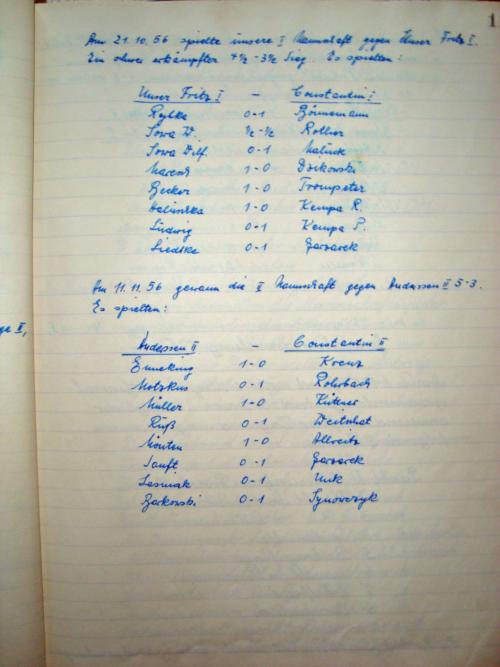 1
Am 21.10.56 spielte unsere I Mannschaft gegen Unser Fritz I.
Ein schwer erkämpfter 4½-3½ Sieg. Es spielten:
Unser Fritz I - Constantin I
Rybka 0-1 Börnemann
Sowa W. ½-½ Rother
Sowa Dlf. 0-1
1-0
Becker 1-0 Trompeter
1-0 Kempa R.
Ludwig 0-1 Kempa P.
Liedtke 0-1 Garzarek
Am 11.11.56 gewann die II Mannschaft gegen Andassen II 5-3.
Es spielten:
ge II,
Andassen II - Constantin II
Emeking 1-0 Kreuz
Motzkus 0-1 Rohrbach
Müller 1-0 Küttner
Ruß 0-1
Mönten 1-0
Sauft 0-1 Garzarek
Lesniak 0-1 Unk
Borkowski 0-1 Synowczyk